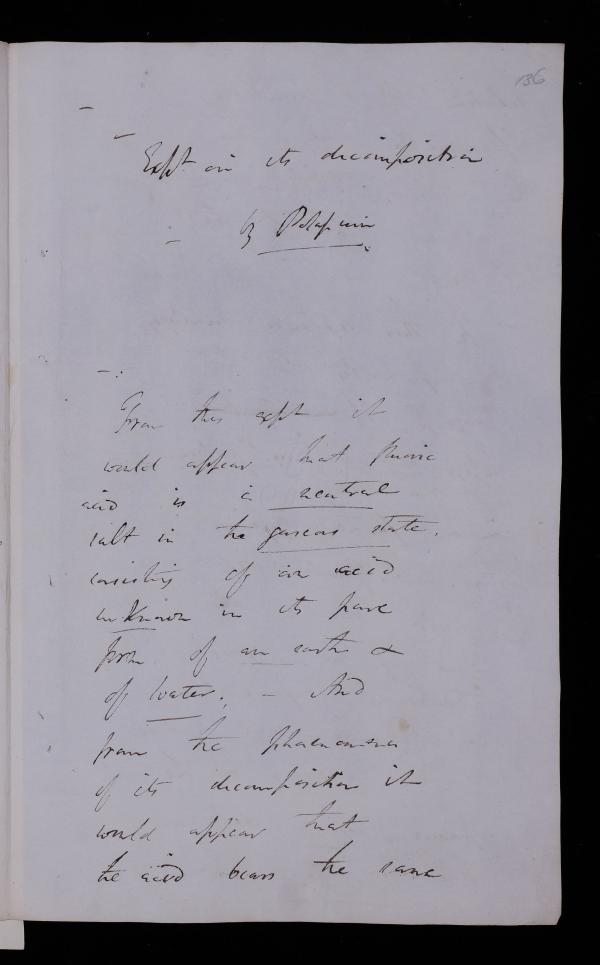 136
Expt on its decomposition
by Potassium
From this expt it
would appear that fluoric
acid is a neutral
salt in the gaseous state.
consisting of an acid
unknown in its pure
form of an earth &
of water. – And
from the phaenomena
of its decomposition it
would appear that
the acid bears the same